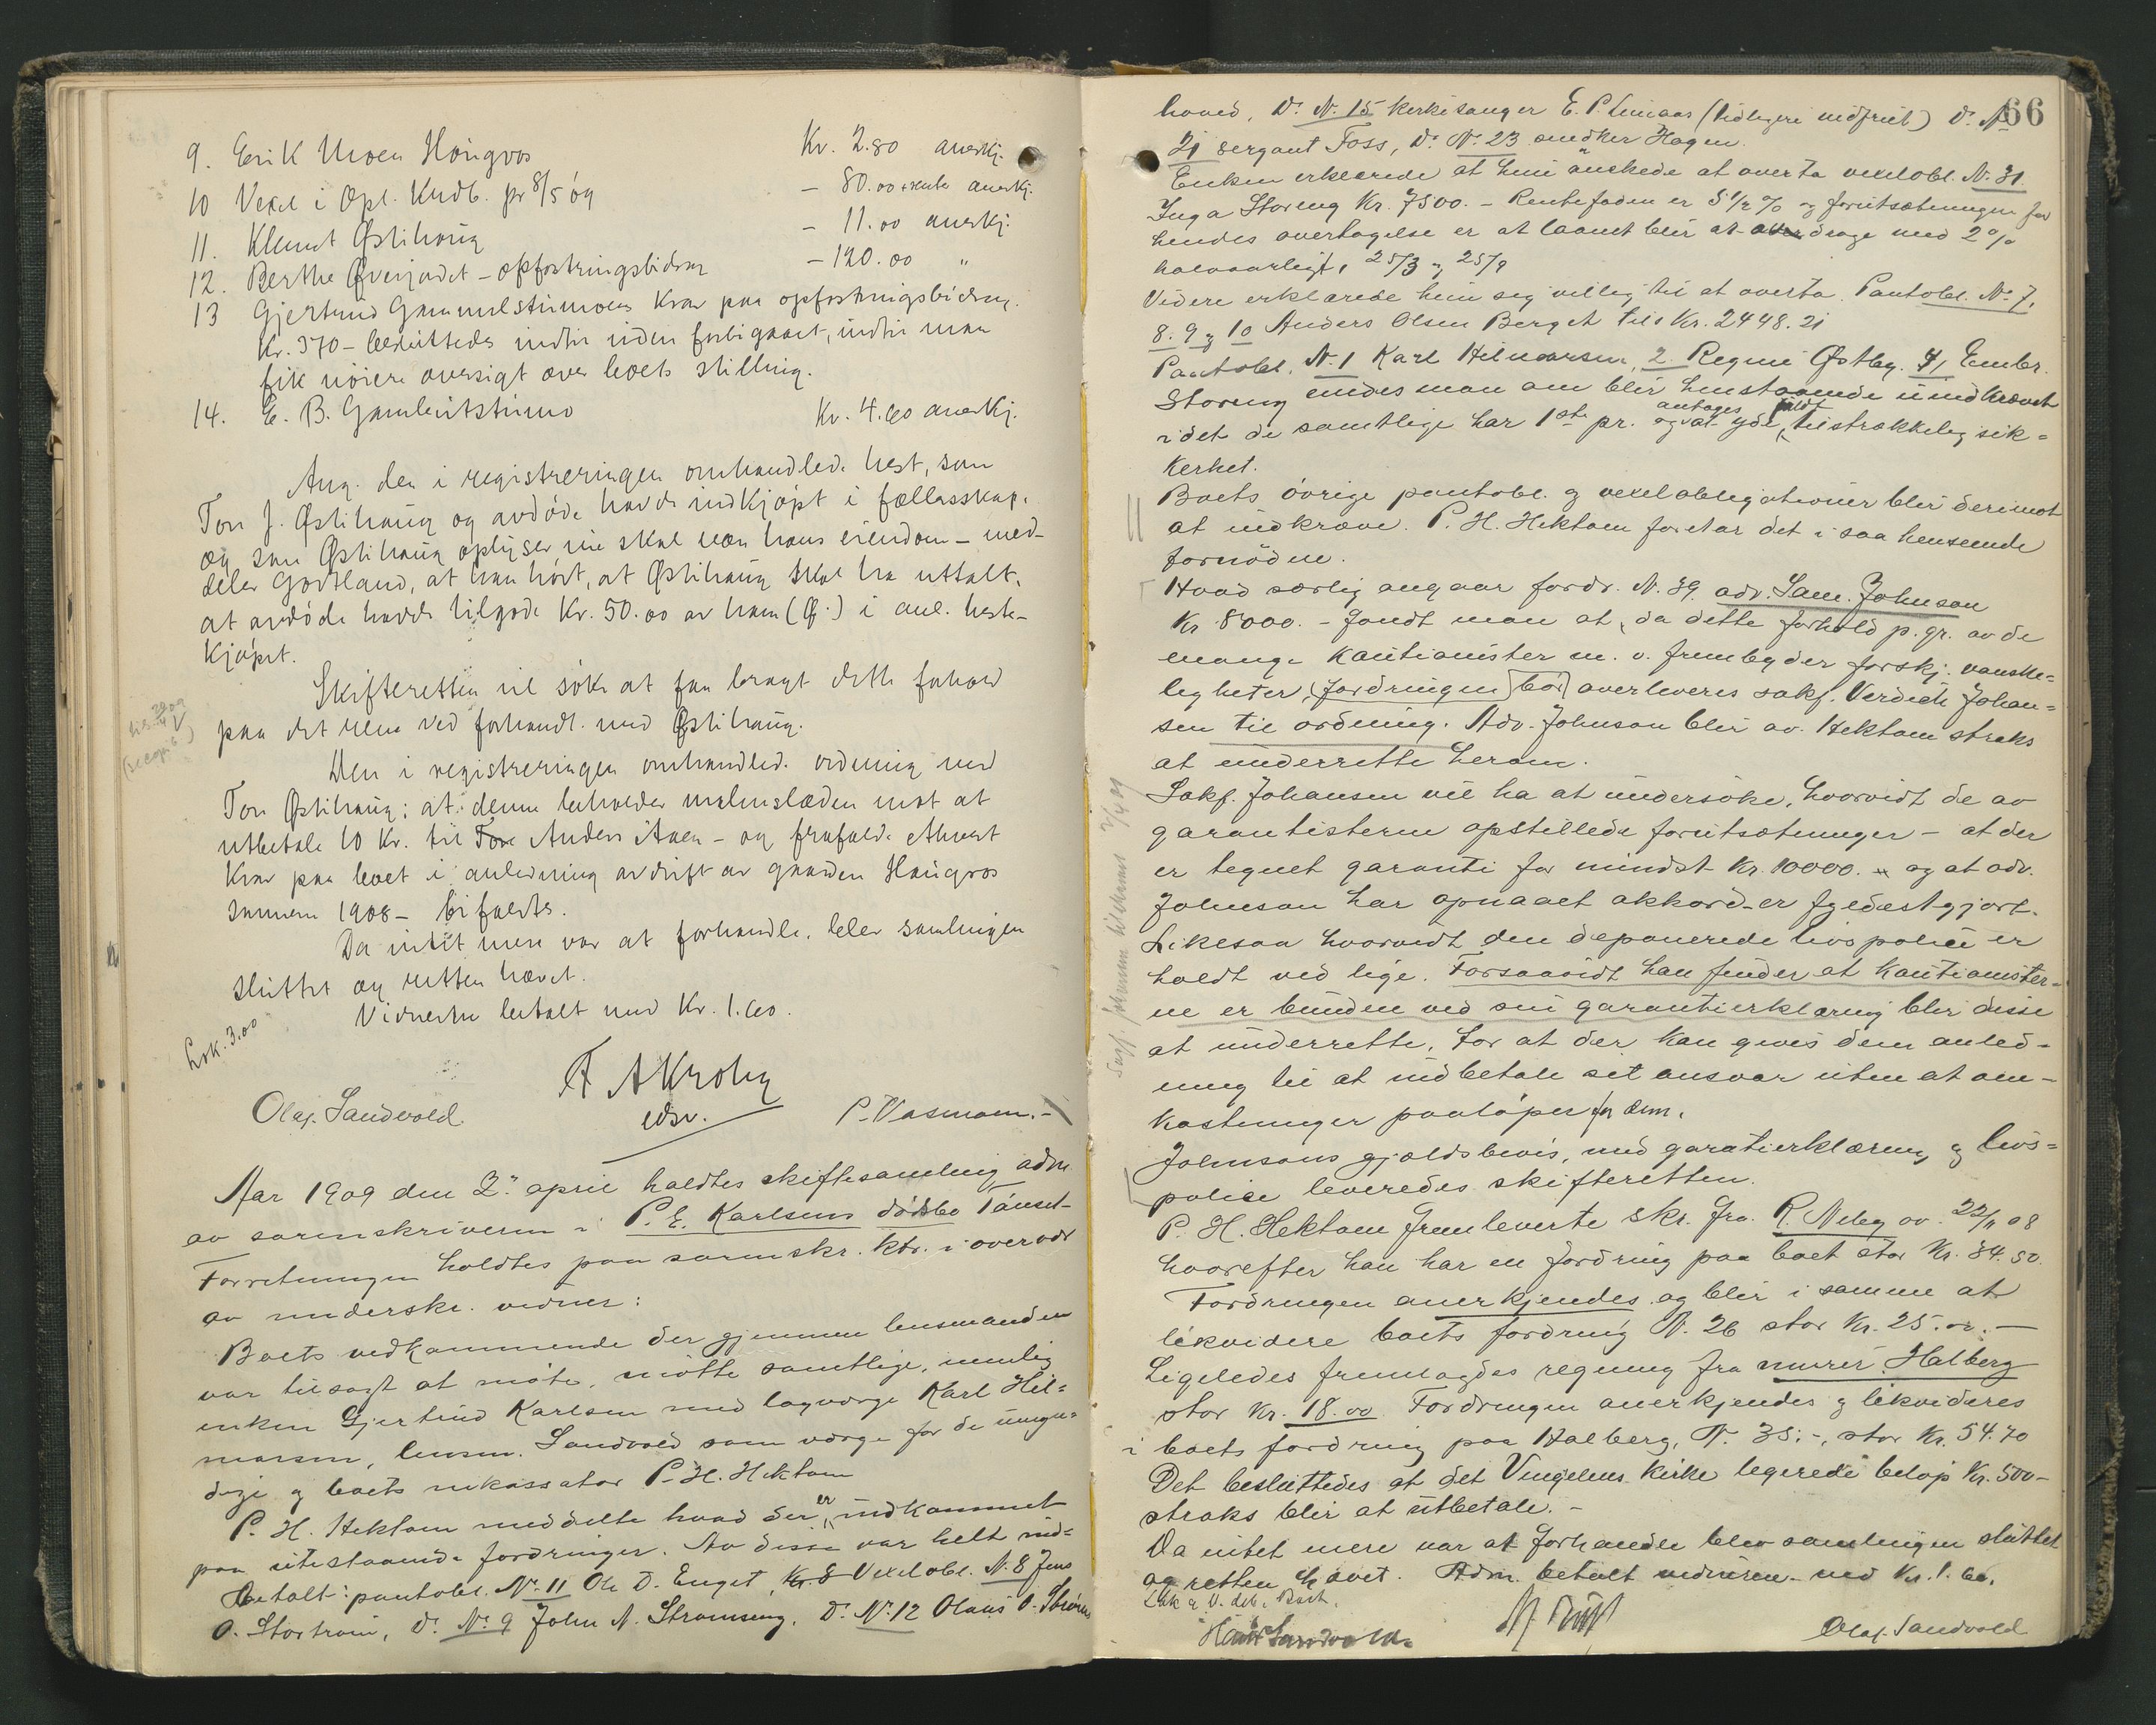 9. Erik Moen Haugros Kr. 2.80 anerkj.
10 Vexel i Opl. Kredb. pr 8/5 09 – 80.00 + rente anerkj.
11. Klemet Østihaug – 11.00 anerkj.
12. Berthe Øverjordet – opfostringsbidrag – 120.00 "
13 Gjertrud Gammelstumoens krav paa opfostringsbidrag.
Kr. 370 – besluttedes indtil viden forbigaaet, indtil man
fik nøiere oversigt over boets stilling.
14. E. B. Kr. 4.60 anerkj.
Ang. den i registreringen omhandlede hest, som
Tore J. Østihaug og avdøde havde indkjøpt i fællesskap.
og som Østihaug oplyser nu skal være hans eiendom – med-
deler Godtland, at han hørt, at Østihaug skal ha uttalt,
at avdøde havde tilgode Kr. 50.00 av ham (Ø.) i anl. heste-
kjøpet.
Skifteretten vil søke at faa bragt dette forhold
paa det rene ved forhandl. med Østihaug.
Den i registreringen omhandlede ordning med
Tore Østihaug: at denne beholder malmslæden mot at
utbetale 10 Kr. til Tore Anders Aaen – og frafalde ethvert
krav paa boet i anledning av drift av gaarden Haugros
sommeren 1908 – bifaldtes.
Da intet mere var at forhandle, blev samlingen
sluttet og retten hævet.
Vidnerne betalt med Kr. 1.60.
Lok. 3.00
F A Krohg
edsv.
Olaf Sandvold P. Vasmoen.–
Aar 1909 den 2. april holdtes skiftesamling adm
av sorenskriveren i P. E. Karlsens dødsbo Tønset–
Forretningen holdtes paa sorenskr. ktr. i overvær
av underskr. vidner:
Boets vedkommende der gjennem lensmanden
var tilsagt at møte, møtte samtlige, nemlig
enken Gjertrud Karlsen med lagværge Karl Hil=
marsen, lensm. Sandvold som værge for de umyn=
dige og boets inkassator P. H. Hektoen
P. H. Hektoen meddelte hvad der er indkommet
paa utestaaende fordringer. Av disse var helt ind=
betalt: pantobl. No. 11 Ole D. Enget, Kr. 8 Vexelobl. N. 8 Jens
O. Storhrøi, Do No 9 John N. Strømseng, Do No 12 Olaus O.
66
hoved, Do No. 15 kirkesanger E. P. (tidligere indfriet) Do No
21 sergant Foss, Do No. 23 snedker Hagen.
Enken erklærede at hun ønskede at overta vexelobl. No. 31
Inga Storeng Kr. 7500. – Rentefoden er 5 1/2 % og forutsætningen for
hendes overtagelse er at laanet blir at avdrage med 2 %
halvaarligt, 25/3 og 25/9
Videre erklærede hun sig villig til at overta Pantobl. No 7,
8. 9 og 10 Anders Olsen Berget tils Kr. 2448.21
Pantobl. N. 1 Karl Hilmarsen, 2. Regine Østby. 4, Embr.
Storeng enedes man om blir henstaaende uindkrævet
idet de samtlige har 1ste pr. og antages at yde fuldt tilstrækkelig sik=
kerhet.
Boets øvrige pantobl. og vexelobligationer blir derimot
at indkræve. P. H. Hektoen foretar det i saa henseende
fornødne.
Hvad særlig angaar fordr. N. 39 adv. Sam. Johnson
Kr 8000. – fandt man at, da dette forhold p. gr. av de
mange kautionister m. v. frembyder forskj. vanske=
ligheter, fordringen bør overleveres sakf. Verdich Johan=
sen til ordning. Adv. Johnson blir av Hektoen straks
at underrette herom.
Sakf. Johansen vil ha at undersøke, hvorvidt de av
garantisterne opstillede forutsætninger – at der
er tegnet garanti for mindst Kr. 10000. – og at adv.
Johnson har opnaaet akkord – er fyldestgjort.
Likesaa hvorvidt den deponerede livspolice er
holdt ved lige. Forsaavidt han finder at kautionister=
ne er bunden ved sin garantierklæring blir disse
at underrette, for at der kan gives dem anled=
ning til at indbetale sit ansvar uten at om=
kostninger paaløper for dem.
Johnsons gjældsbevis, med garantierklæring og livs=
police leveredes skifteretten.
P. H. Hektoen fremleverte skr. fra R. Neby av 22/11 08
hvorefter han har en fordring paa boet stor Kr. 34.50.
Fordringen anerkjendes og blir i samme at
likvidere boets fordring N. 26 stor Kr. 25.00. –
Ligeledes fremlagdes regning fra murer Halberg
stor Kr. 18.00 Fordringen anerkjendes og likvideres
i boets fordring paa Halberg, N. 35. –, stor Kr. 54.70
Det besluttedes at det Vingelens kirke legerede beløp Kr. 500–
straks blir at utbetale. –
Da intet mere var at forhandle blev samlingen sluttet
og retten hævet. Adm. betalt vidnerne med Kr. 1.60.
Olaf Sandvold